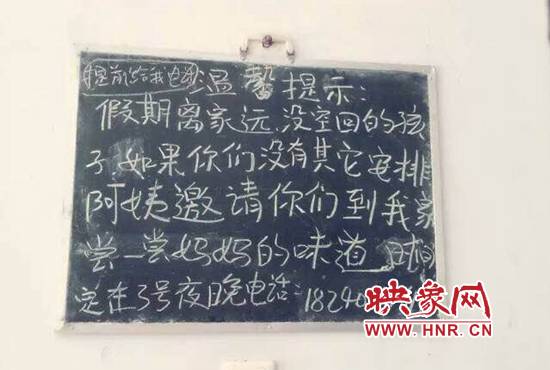 提前给我电话温馨提示:
假期离家远,没空回的孩
子.如果你们没有其它安排
阿姨邀请你们到我家
尝一尝妈妈的味道,时间
定在3号夜晚电话:18240
映象网
www.HNR.CN